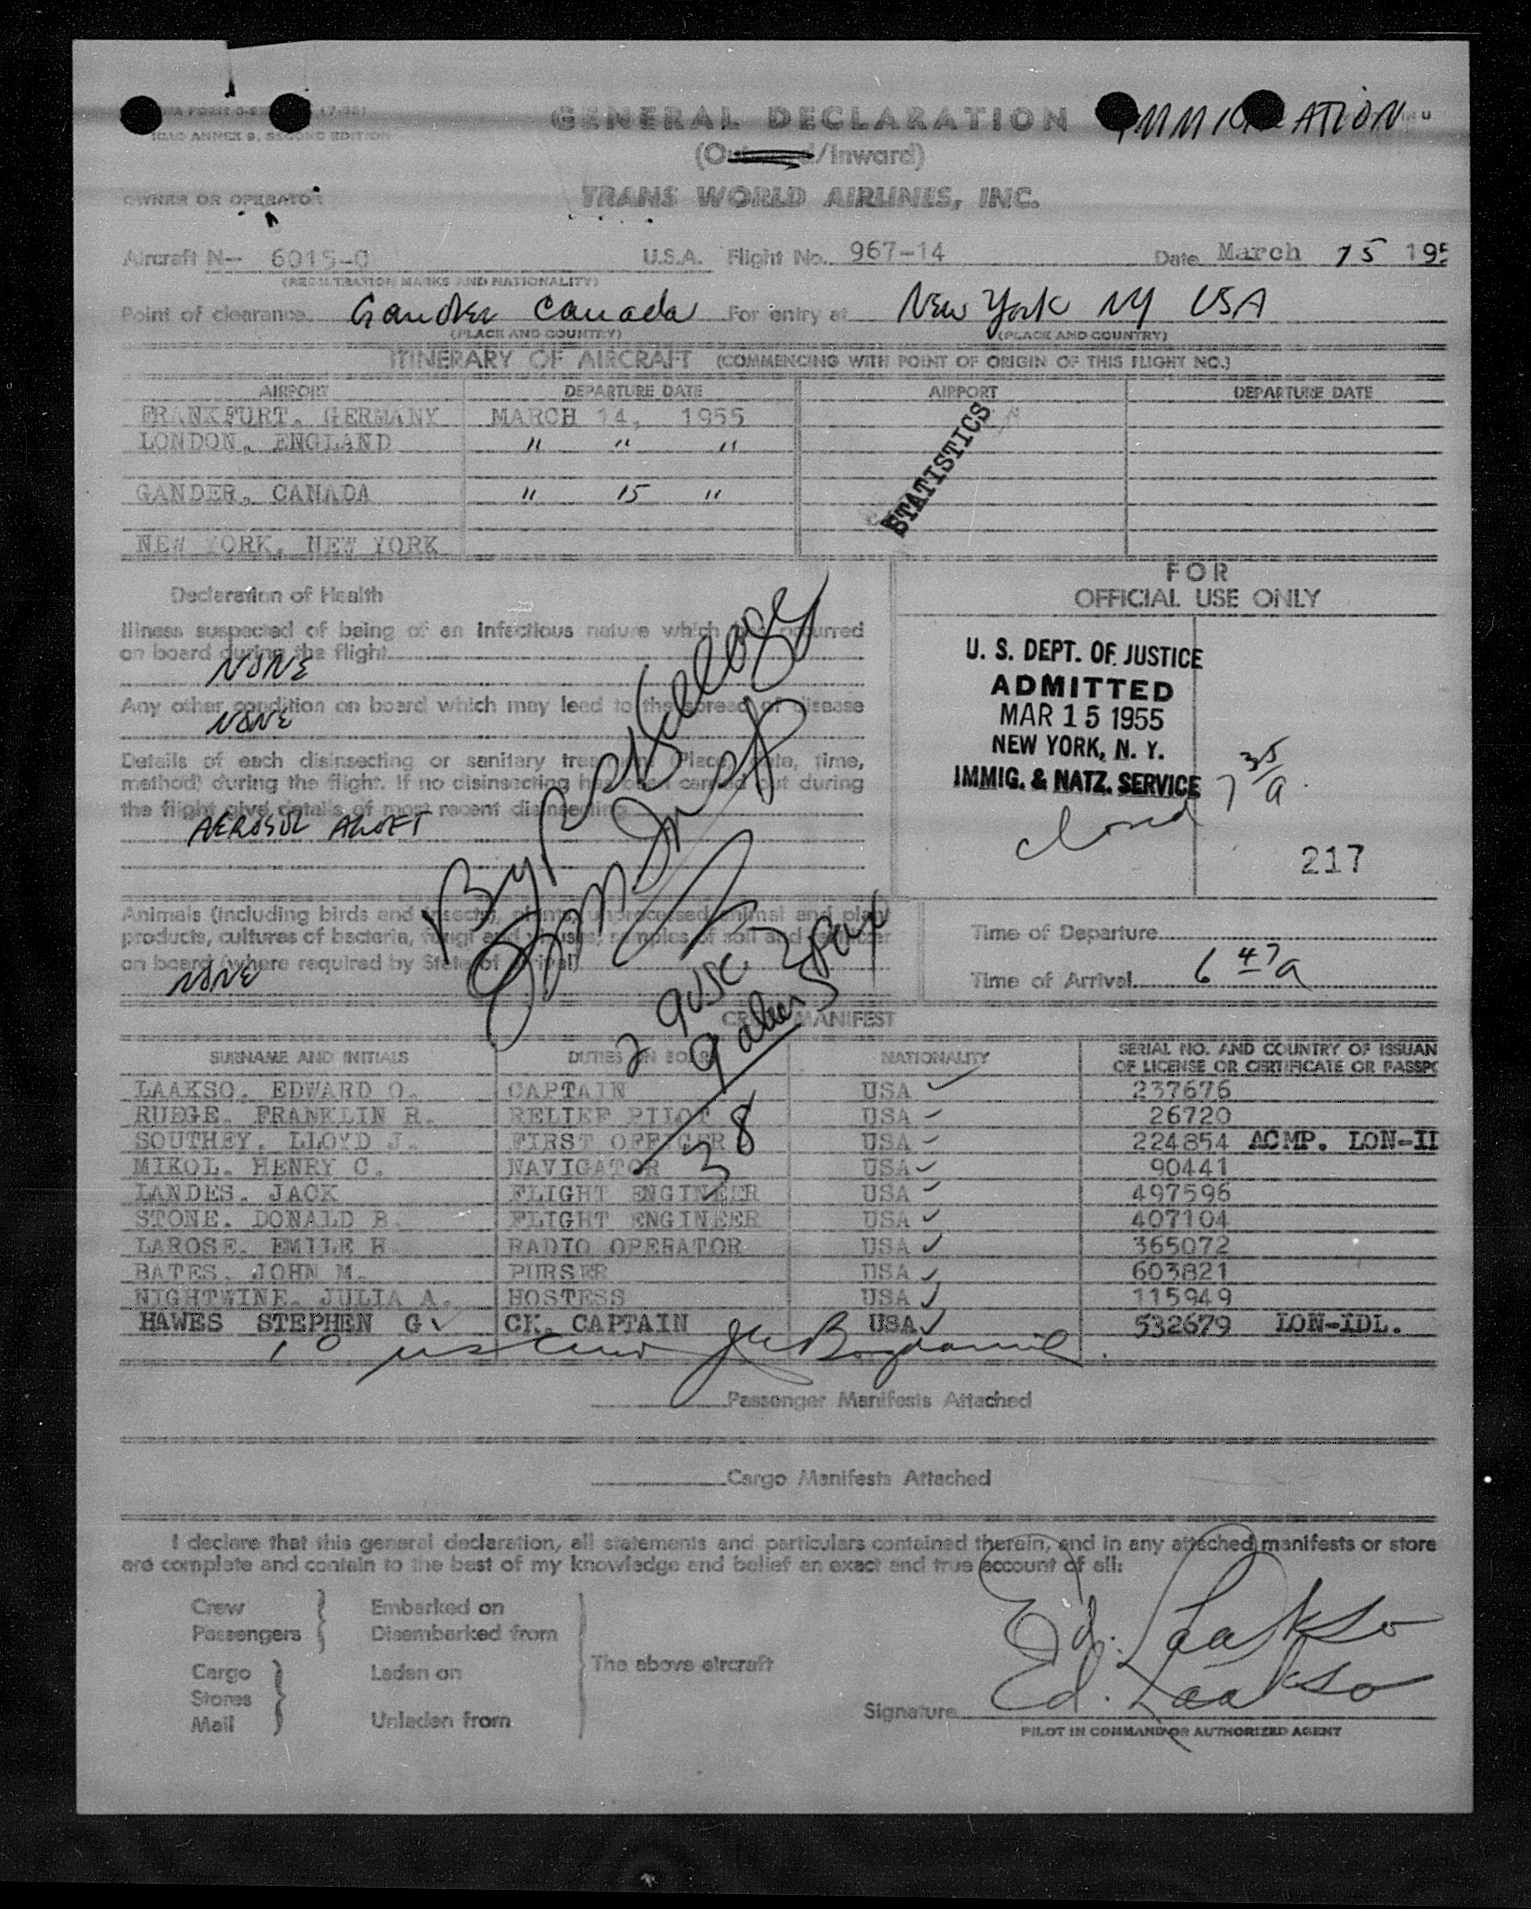 GENERAL DECLARATION
ICAO ANNEX 9, SECOND EDITION
(Outward/Inward)
OWNER OR OPERATOR TRANS WORLD AIRLINES, INC.
Aircraft N- 6015-C U.S.A. Flight No. 967-14 Date March 15 195
(REGISTRATION MARKS AND NATIONALITY)
Point of clearance Gander Canada For entry at New York NY USA
(PLACE AND COUNTRY) (PLACE AND COUNTRY)
ITINERARY OF AIRCRAFT (COMMENCING WITH POINT OF ORIGIN OF THIS FLIGHT NO.)
AIRPORT DEPARTURE DATE AIRPORT DEPARTURE DATE
FRANKFURT, GERMANY MARCH 14, 1955
LONDON, ENGLAND " " "
STATISTICS
GANDER, CANADA " 15 "
NEW YORK, NEW YORK
Declaration of Health
Illness suspected of being of an infectious nature which has occurred
on board during the flight
NONE
Any other condition on board which may lead to the spread of disease
NONE
Details of each disinsecting or sanitary treatment (Place, date, time,
method) during the flight. If no disinsecting has been carried out during
the flight give details of most recent disinsecting
AEROSOL ALOFT
FOR
OFFICIAL USE ONLY
U. S. DEPT. OF JUSTICE
ADMITTED
MAR 15 1955
NEW YORK, N. Y.
IMMIG. & NATZ. SERVICE
7 35/a
closed
217
Animals (including birds and insects), plants, unprocessed animal and plant
products, cultures of bacteria, fungi and viruses, samples of soil and fertilizer
on board (where required by State of Arrival)
NONE
Time of Departure
Time of Arrival 6 47 a
2 9 USC
9 aliens
38
CREW MANIFEST
SURNAME AND INITIALS DUTIES ON BOARD NATIONALITY SERIAL NO. AND COUNTRY OF ISSUAN
OF LICENSE OR CERTIFICATE OR PASSPO
LAAKSO, EDWARD O. CAPTAIN USA 237676
RUEGE, FRANKLIN R. RELIEF PILOT USA 26720
SOUTHEY, LLOYD J. FIRST OFFICER USA 224854 ACMP. LON-II
MIKOL, HENRY C. NAVIGATOR USA 90441
LANDES, JACK FLIGHT ENGINEER USA 497596
STONE, DONALD B. FLIGHT ENGINEER USA 407104
LAROSE, EMILE H RADIO OPERATOR USA 365072
BATES, JOHN M. PURSER USA 603821
NIGHTWINE, JULIA A. HOSTESS USA 115949
HAWES STEPHEN G. CK. CAPTAIN USA 532679 LON-IDL.
10
Passenger Manifests Attached
Cargo Manifests Attached
I declare that this general declaration, all statements and particulars contained therein, and in any attached manifests or store
are complete and contain to the best of my knowledge and belief an exact and true account of all:
Crew Embarked on
Passengers Disembarked from
The above aircraft
Cargo Laden on
Stores
Mail Unladen from
Ed. Laakso
Signature Ed. Laakso
PILOT IN COMMAND OR AUTHORIZED AGENT